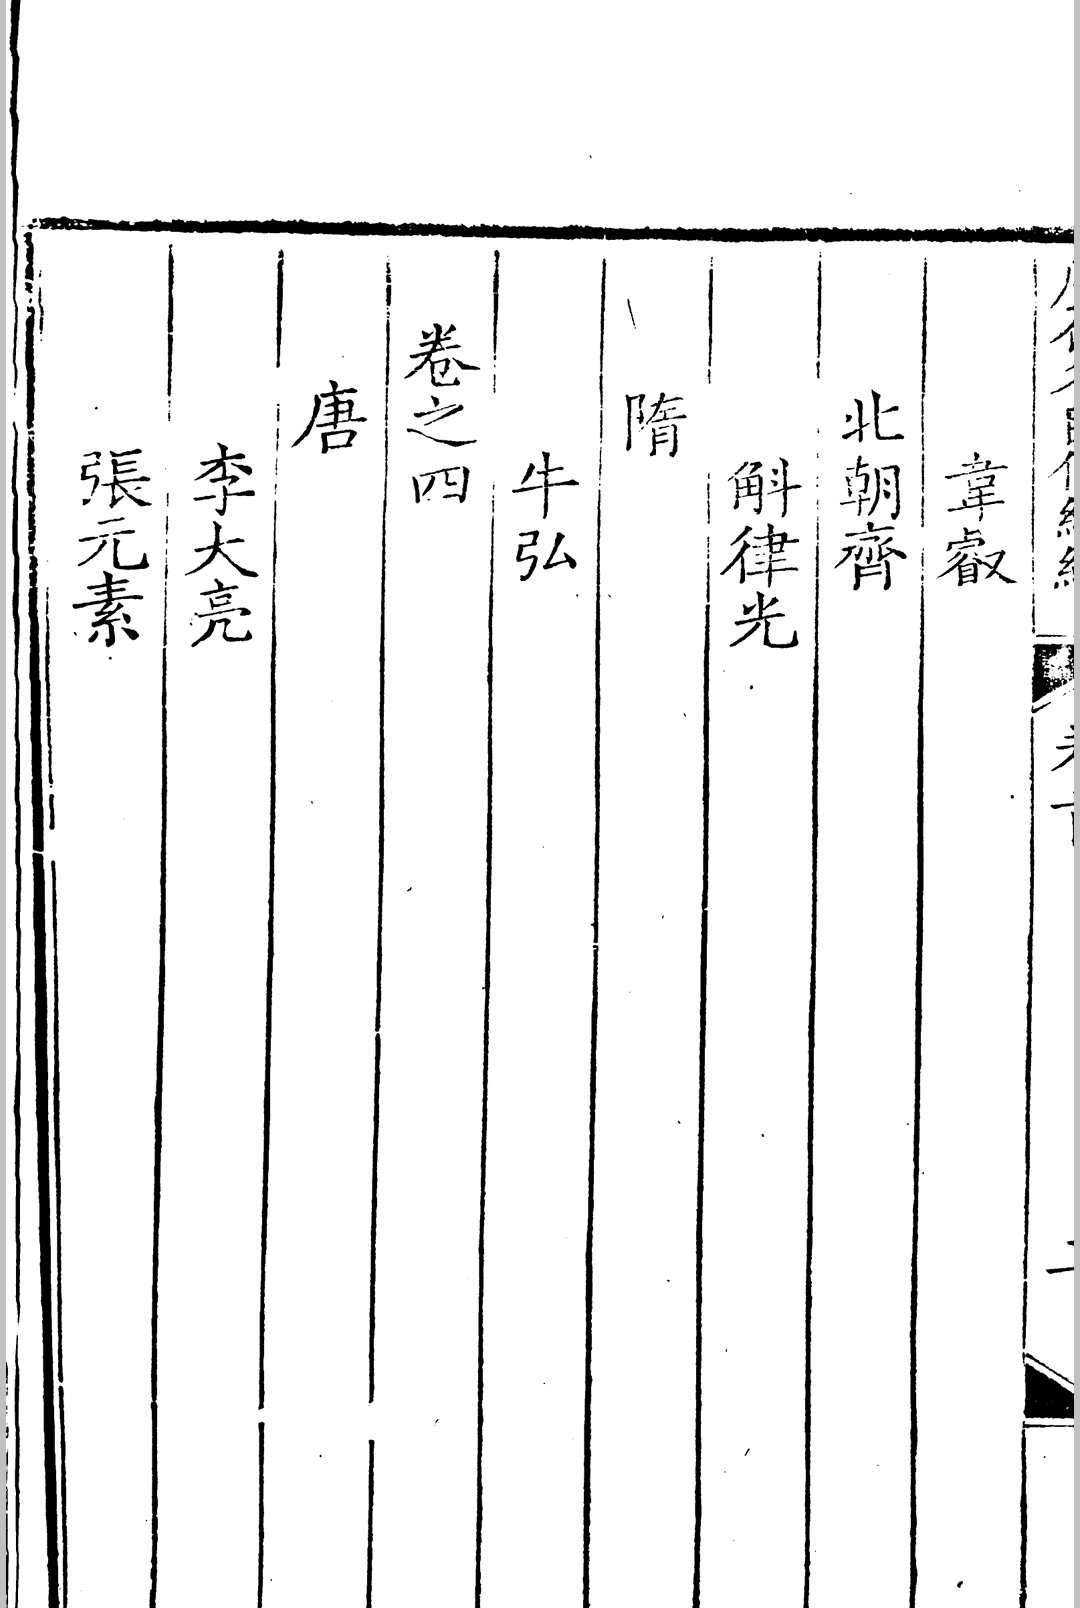 韋叡
北朝齊
斛律光
隋
牛弘
卷之四
唐
李大亮
張元素